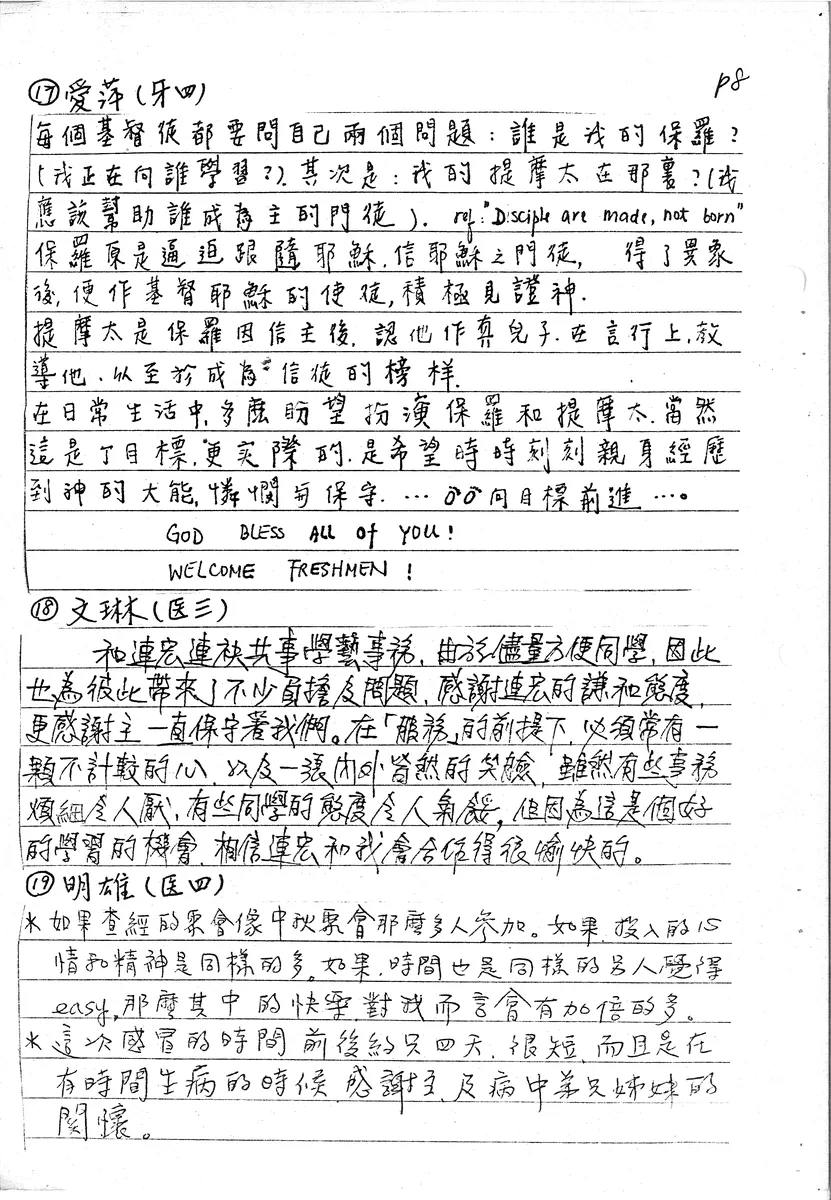 p8
⑰愛萍(牙四)
每個基督徒都要問自己兩個問題:誰是我的保羅?
(我正在向誰學習?).其次是:我的提摩太在那裏?(我
應該幫助誰成為主的門徒). ref:"Disciple are made, not born"
保羅原是逼迫跟隨耶穌.信耶穌之門徒, 得了異象
後,便作基督耶穌的使徒,積極見證神.
提摩太是保羅因信主後,認他作真兒子.在言行上,教
導他.以至於成為信徒的榜样.
在日常生活中,多麼盼望扮演保羅和提摩太.當然
這是丁目標,更实際的.是希望時時刻刻親身經歷
到神的大能,憐憫与保守.…向目標前進…。
GOD BLESS ALL of YOU!
WELCOME FRESHMEN!
⑱文琳(医三)
和連宏連袂共事學藝事務,由於儘量方便同學,因此
也為彼此帶來了不少負擔及問題,感謝連宏的謙和態度,
更感謝主一直保守著我們。在「服務」的前提下,必須常有一
顆不計較的心,以及一張內外皆然的笑臉,雖然有些事務
煩細令人厭,有些同學的態度令人氣餒,但因為這是個好
的學習的機會,相信連宏和我會合作得很愉快的。
⑲明雄(医四)
*如果查經的聚會像中秋聚會那麼多人參加。如果,投入的心
情和精神是同樣的多。如果,時間也是同樣的另人覺得
easy,那麼其中的快樂,對我而言會有加倍的多。
*這次感冒的時間前後約只四天,很短,而且是在
有時間生病的時候,感謝主,及病中弟兄姊妹的
関懷。